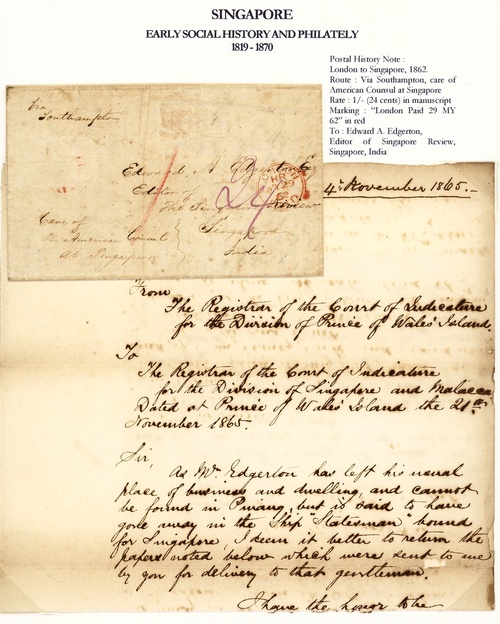 SINGAPORE
EARLY SOCIAL HISTORY AND PHILATELY
1819 - 1870
Postal History Note :
London to Singapore, 1862.
Route : Via Southampton, care of
American Counsul at Singapore
Rate : 1/- (24 cents) in manuscript
Marking : "London Paid 29 MY
62" in red
To : Edward A. Edgerton,
Editor of Singapore Review,
Singapore, India
Via
Southampton
Edward A Edgerton Esq
Editor of
The Singapore Review
Singapore
India
24
Care of
The American Consul
at Singapore
4th November 1865.-
From
The Registrar of the Court of Judicature
for the Division of Prince of Wales' Island.
To
The Registrar of the Court of Judicature
for the Division of Singapore and Malacca
Dated at Prince of Wales' Island the 21st
November 1865.
Sir,
As Mr. Edgerton has left his usual
place of business and dwelling, and cannot
be found in Pinang, but is said to have
gone away in the Ship "Statesman" bound
for Singapore, I deem it better to return the
papers noted below which were sent to me
by you for delivery to that gentleman.
I have the honor to be